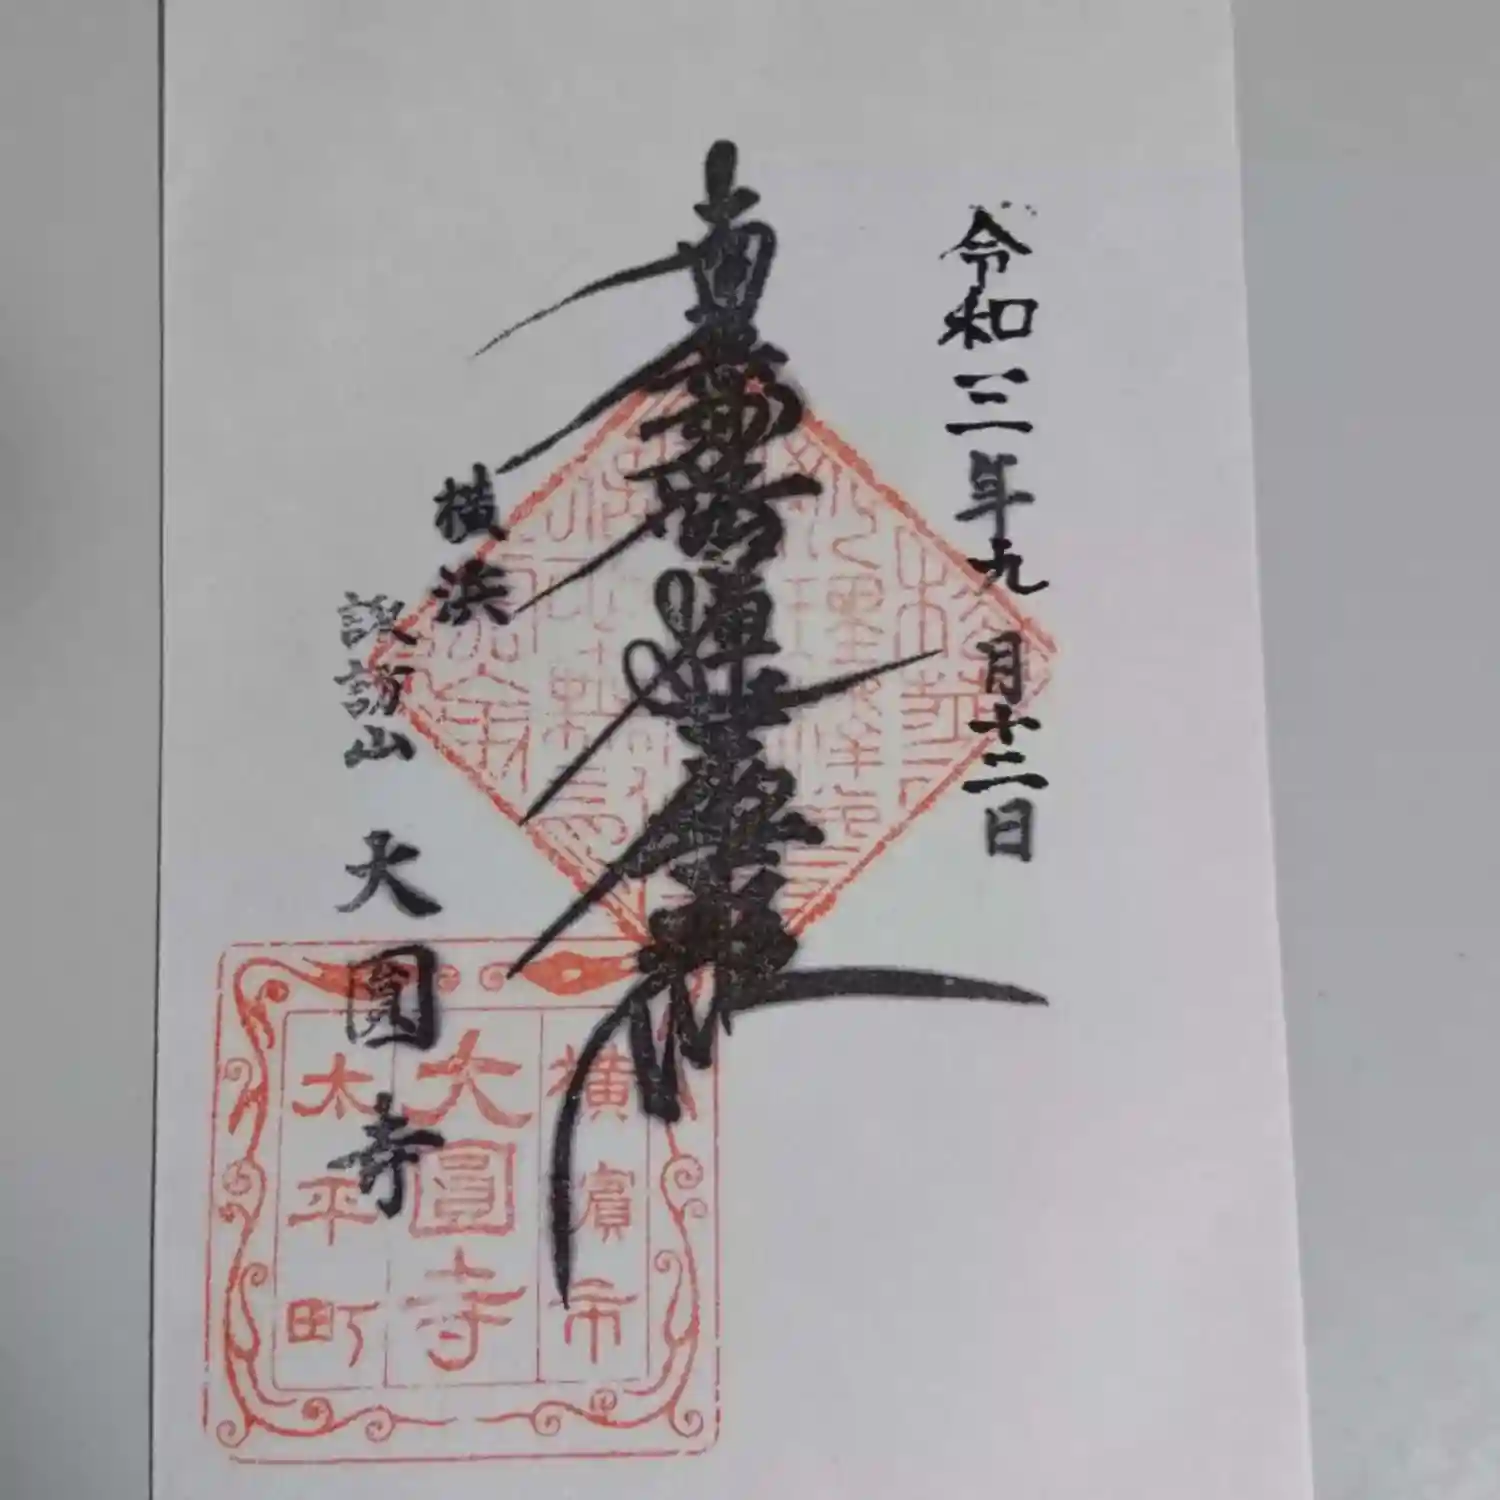 令和三年九月十二日
南無妙法蓮華経
横浜
諏訪山 大圓寺
横濱市
大圓寺
太平町